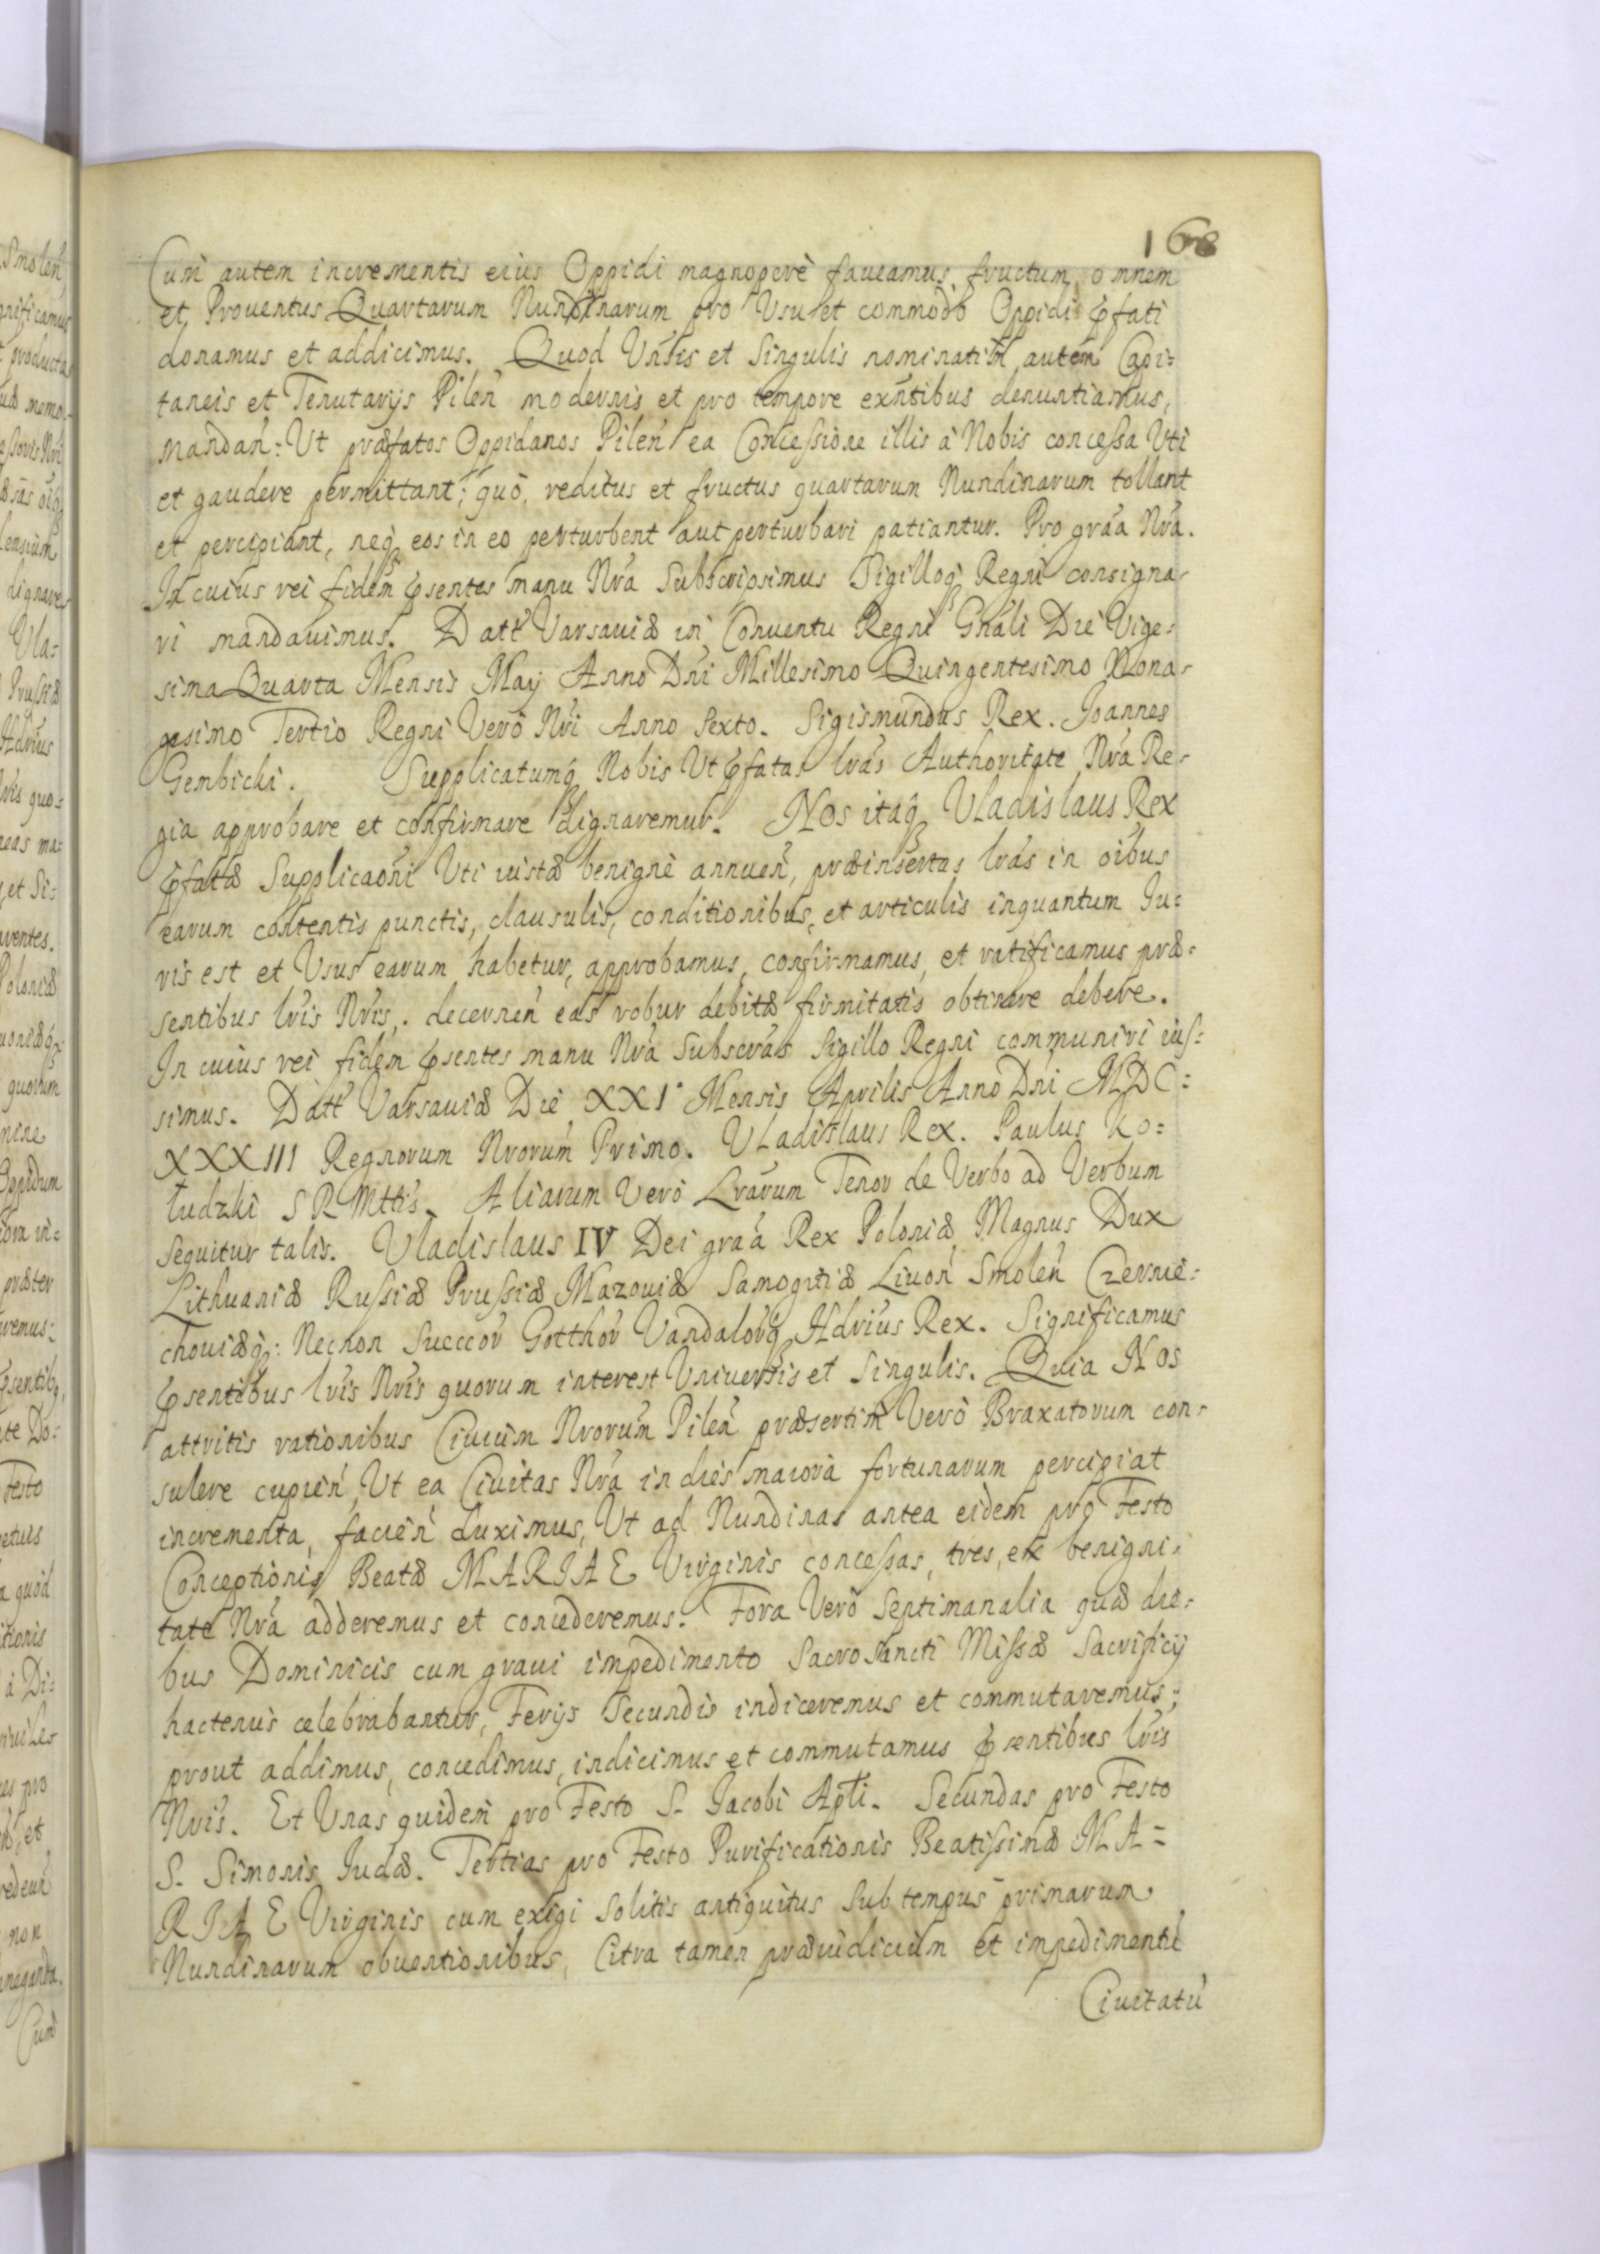 168
Cum autem incrementis eius Oppidi magnoperè faueamus, fructum omnem
et Prouentus Quartarum Nundinarum pro Vsu et commodo Oppidi pfati
donamus et addicimus. Quod Vnsis et Singulis nominatim autem Capi=
taneis et Tenutarijs Pilen̄ modernis et pro tempore exn̄tibus denuntiamus,
mandan̄: Vt præfatos Oppidanos Pilen̄ ea Concessione illis à Nobis concessa Vti
et gaudere permittant; quò, reditus et fructus quartarum Nundinarum tollant
et percipiant, neq̄ eos in eo perturbent aut perturbari patiantur. Pro grāa Nrā.
In cuius rei fidem p̄sentes manu Nrā Subscripsimus Sigilloq̄ Regni consigna=
ri mandauimus. Datt Varsauiæ in Conuentu Regni Gnāli Die Vige=
sima Quarta Mensis Maij Anno Dnī Millesimo Quingentesimo Nona=
gesimo Tertio Regni Verò Nrī Anno Sexto. Sigismundus Rex. Joannes
Gembicki. Supplicatumq̄ Nobis Vt p̄fatas lrās Authoritate Nrā Re=
gia approbare et confirmare dignaremur. Nos itaq̄ Vladislaus Rex
p̄fatæ Supplicaōni Vti iustæ benignè annuen̄, præinsertas lrās in oībus
earum contentis punctis, clausulis, conditionibus, et articulis inquantum Ju=
ris est et Vsus earum habetur, approbamus, confirmamus, et ratificamus præ=
sentibus lrīs Nrīs, decernen̄ eas robur debitæ firmitatis obtinere debere.
In cuius rei fidem p̄sentes manu Nrā Subscrās Sigillo Regni communiri ius=
simus. Datt Varsauiæ Die XXI Mensis Aprilis Anno Dnī MDC=
XXXIII Regnorum Nrorum Primo. Vladislaus Rex. Paulus Ko=
łudzki S R Mttis. Aliarum Verò Lrārum Tenor de Verbo ad Verbum
sequitur talis. Vladislaus IV Dei grāa Rex Poloniæ Magnus Dux
Lithuaniæ Russiæ Prussiæ Mazouiæ Samogitiæ Liuon̄ Smolen̄ Czernie=
chouiæq̄: Necnon Succcor̄ Gotthor̄ Vandalorq̄ Hdrius Rex. Significamus
p̄sentibus lrīs Nrīs quorum interest Vniuersis et Singulis. Quia Nos
attritis rationibus Ciuium Nrorum Pilen̄ præsertim Verò Braxatorum con=
sulere cupien̄, Vt ea Ciuitas Nrā in dies maiora fortunarum percipiat
incrementa, facien̄ duximus, Vt ad Nundinas antea eidem pro Festo
Conceptionis Beatæ MARIAE Virginis concessas, tres, ex benigni=
tate Nrā adderemus et concederemus. Fora Verò Septimanalia quæ die=
bus Dominicis cum graui impedimento Sacrosancti Missæ Sacrificij
hactenus celebrabantur, Ferijs Secundis indiceremus et commutaremus;
prout addimus, concedimus, indicimus et commutamus p̄sentibus lrīs
Nrīs. Et Vnas quidem pro Festo S. Jacobi Aptī. Secundas pro Festo
S. Simonis Judæ. Tertias pro Festo Purificationis Beatissimæ MA=
RIAE Virginis cum exigi solitis antiquitus sub tempus primarum
Nundinarum obuentionibus, Citra tamen præiudicium et impedimentū
Ciuitatū